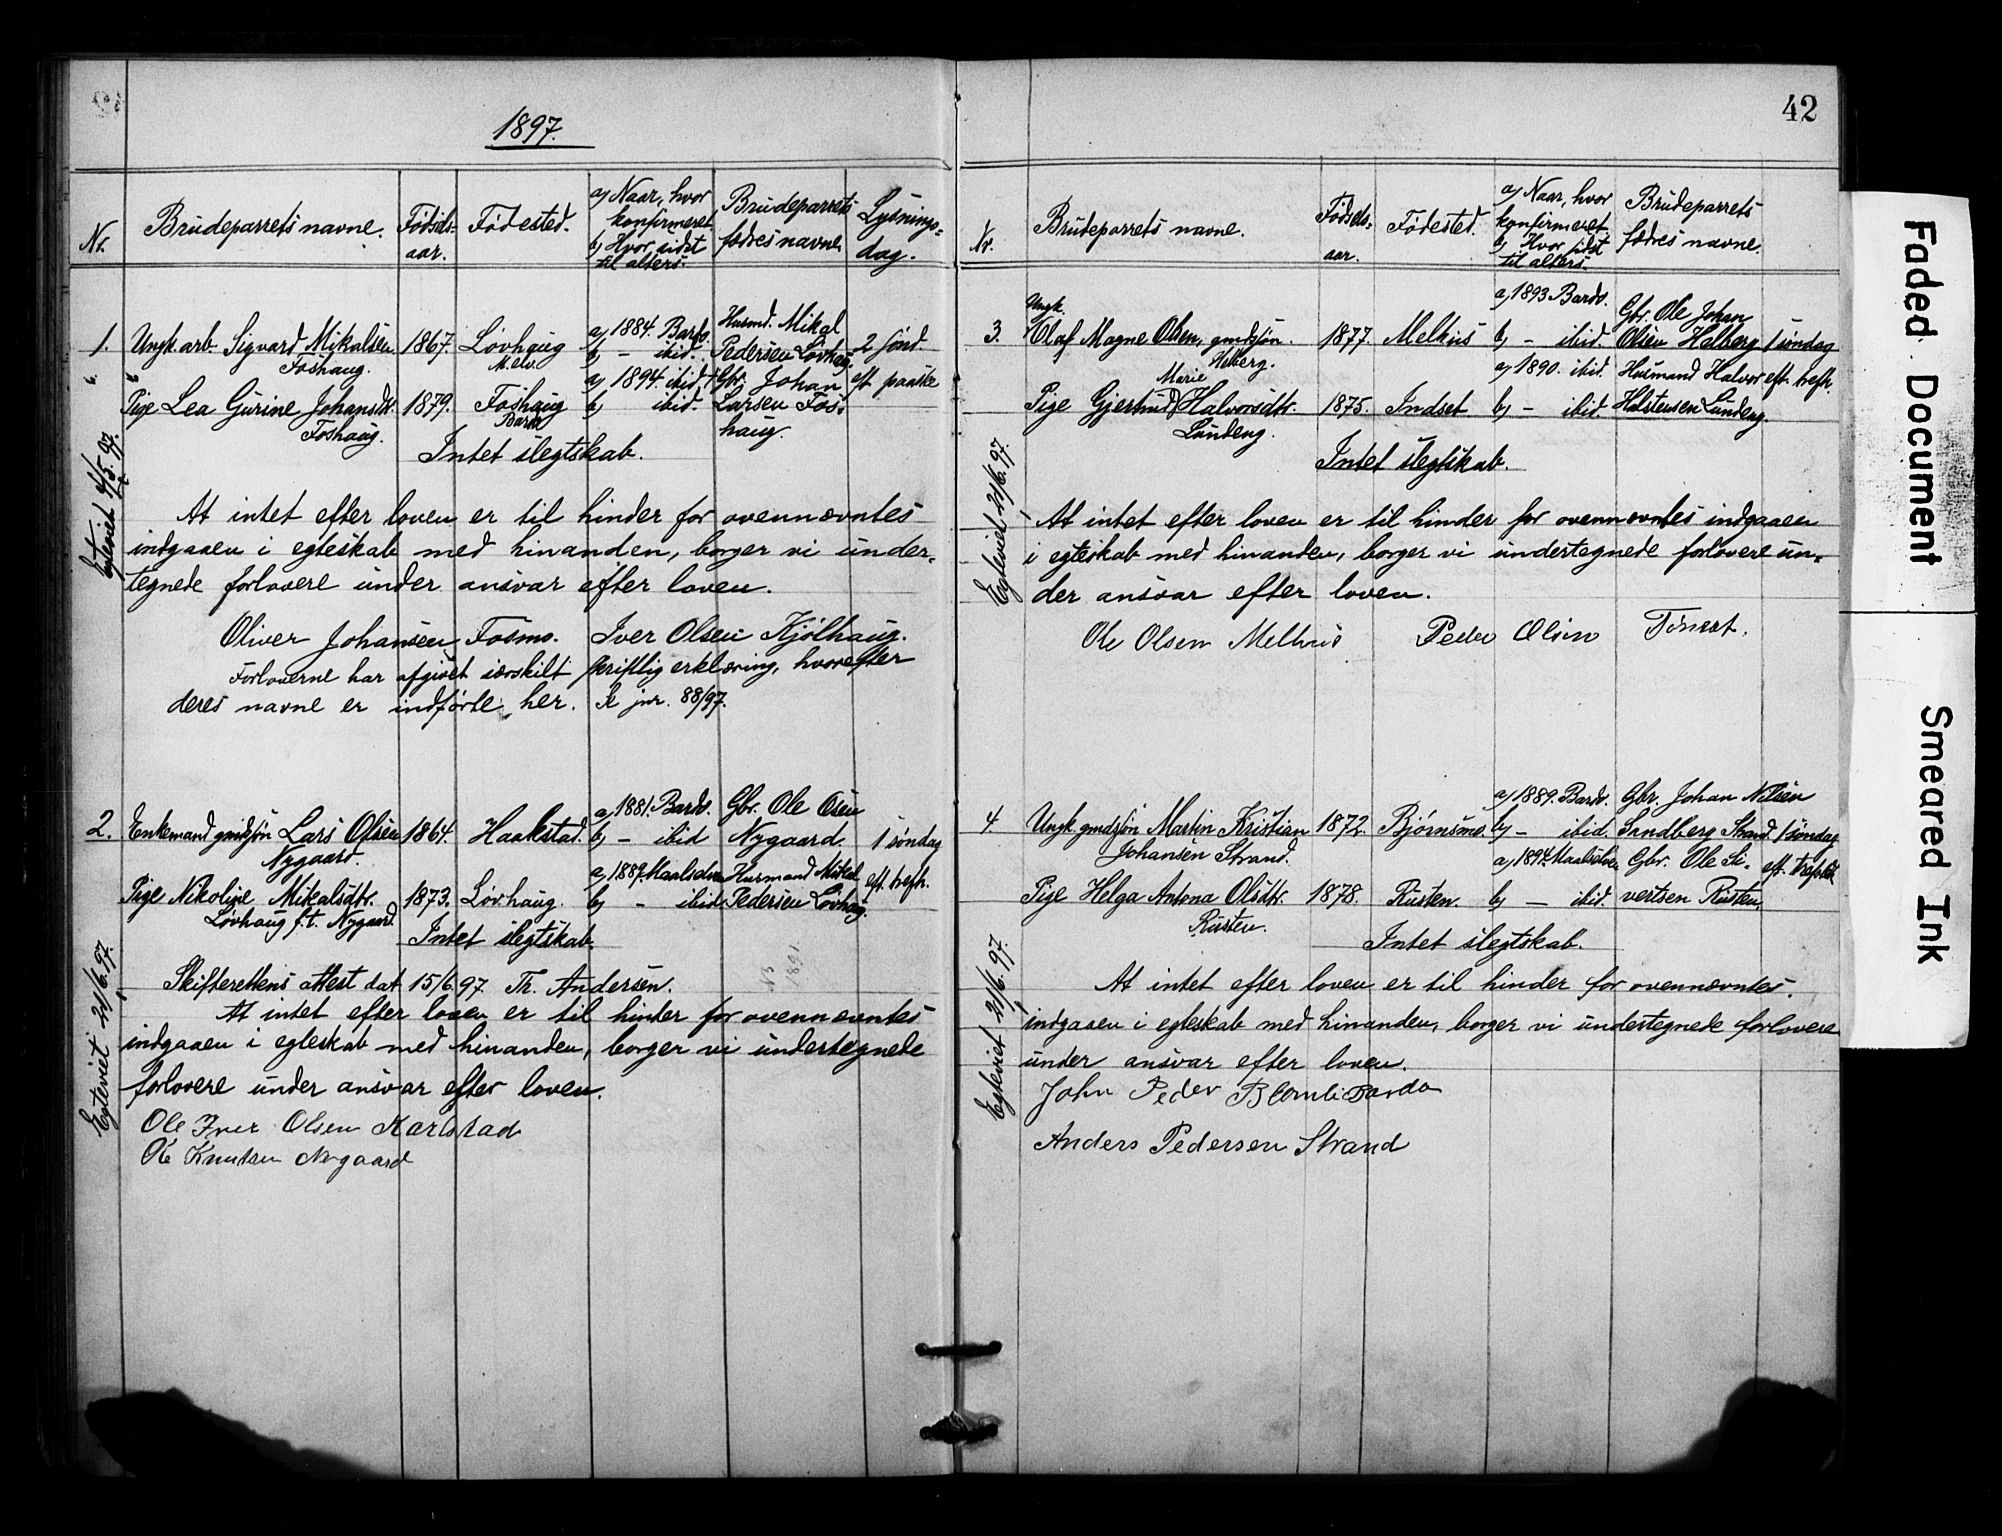 1897.
Nr.
Brudeparrets navne.
Fødsels-
aar.
Fødested.
a) Naar, hvor
konfirmeret.
b) Hvor sidst
til alters.
Brudeparrets
fædres navne.
Lysnings-
dag.
1.
Ungk. arb. Sigvard Mikalsen
Foshaug.
1867.
Løvhaug
M.elv.
a) 1884. Bardo.
b) – ibid.
Husmd. Mikal
Pedersen Løvhaug.
2 sønd
eft paaske
Pige Lea Gurine Johansdtr.
Foshaug.
1879.
Foshaug
Bardo
a) 1894. ibid.
b) ibid.
Gbr. Johan
Larsen Fos-
haug.
Intet slegtskab.
Egteviet 4/5. 97.
At intet efter loven er til hinder for ovennævntes
indgaaen i egteskab med hinanden, borger vi under-
tegnede forlovere under ansvar efter loven.
Oliver Johansen Fosmo. Iver Olsen Kjølhaug.
Forloverne har afgivet særskilt skriftlig erklæring, hvorefter
deres navne er indførte her. Se jnr. 88/97.
2.
Enkemand gmdsøn Lars Olsen
Nygaard.
1864.
Haakstad.
a) 1881. Bardo.
b) – ibid
Gbr. Ole Osen
Nygaard.
1 søndag
eft. trefh.
Pige Nikoline Mikalsdtr.
Løvhaug f.t. Nygaard.
1873.
Løvhaug.
a) 1887. Maalselven
b) – ibid
Husmand Mikal
Pedersen Løvhaug.
Intet slegtskab.
NB
1891
Egteviet 21/6. 97.
Skifterettens attest dat. 15/6. 97. Th. Andersen.
At intet efter loven er til hinder for ovennævntes
indgaaen i egteskab med hinanden, borger vi undertegnede
forlovere under ansvar efter loven.
Ole Iver Olsen Karlstad
Ole Knutsen Nygaard
42
Nr.
Brudeparrets navne.
Fødsels-
aar.
Fødested.
a) Naar, hvor
konfirmeret.
b) Hvor sidst
til alters.
Brudeparrets
fædres navne.
3.
Ungk.
Olaf Magne Olsen, gmdsøn.
Helberg.
1877.
Melhus
a) 1893 Bardo.
b) – ibid.
Gbr. Ole Johan
Olsen Helberg
1 søndag
eft. trefh.
Marie
Pige Gjertrud Halvorsdtr.
Lundeng.
1875.
Indset
a) 1890. ibid.
b) – ibid
Husmand Halvor
Halstensen Lundeng.
Intet slegtskab.
Egteviet 21/6. 97.
At intet efter loven er til hinder for ovennævntes indgaaen
i egteskab med hinanden, borger vi undertegnede forlovere un-
der ansvar efter loven.
Ole Olsen Melhus Peder Olsen
4
Ungk. gmdsøn Martin Kristian
Johansen Strand.
1872.
Bjørnsmo.
a) 1889. Bardo.
b) – ibid.
Gbr. Johan Nilsen
Sandberg Strand.
1 søndag
eft. trefoldh
Pige Helga Antona Olsdtr.
Rusten.
1878.
Rusten.
a) 1894. Maalselven
b) – ibid.
Gbr. Ole Si-
vertsen Rusten.
Intet slegtskab.
Egteviet 21/6. 97.
At intet efter loven er til hinder for ovennævntes.
indgaaen i egteskab med hinanden, borger vi undertegnede forlovere
under ansvar efter loven.
John Peder Blomli Bardo
Anders Pedersen Strand
Faded Document
Smeared Ink